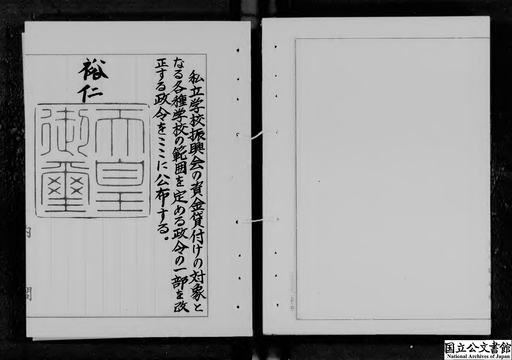 私立学校振興会の資金貸付けの対象と
なる各種学校の範囲を定める政令の一部を改
正する政令をここに公布する。
裕仁
天皇
御璽
内
閣
国立公文書館
National Archives of Japan